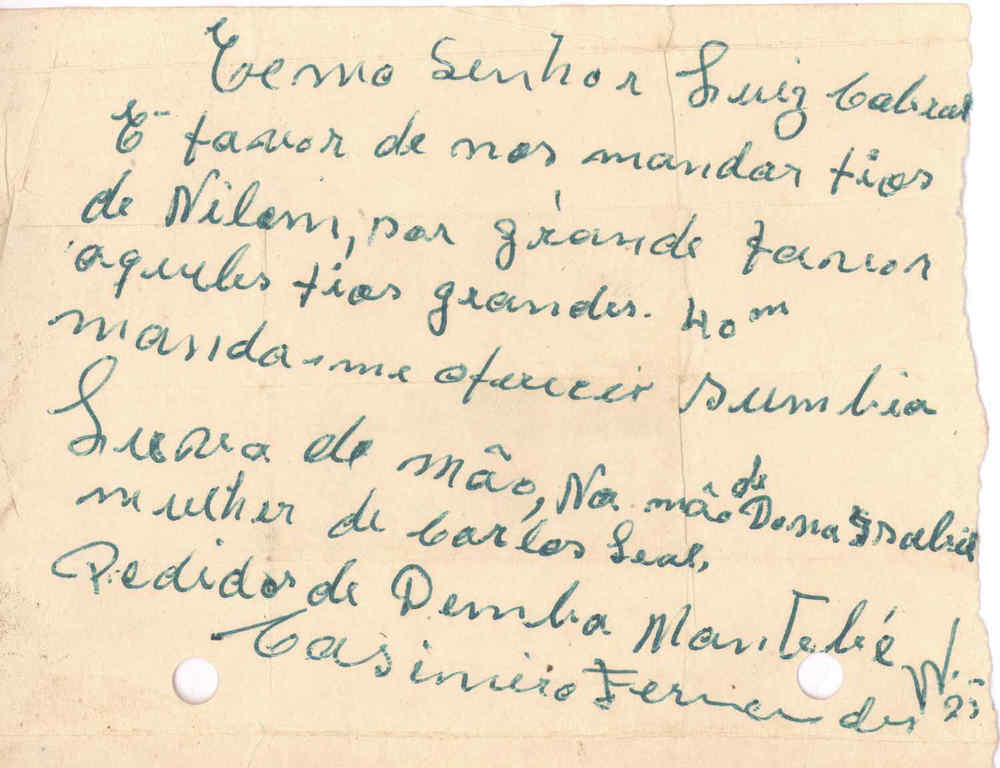 Exmo Senhor Luiz Cabral
É favor de nos mandar fios
de Nilom, por grande favor
aqueles fios grandes. 40 m
manda-me oferecir Sumbia
Luva de mão, Na mão de Dona Isabel
mulher de Carlos Leal,
Pedidos de Demba Mantebé
Casimiro Fernandes N. 25